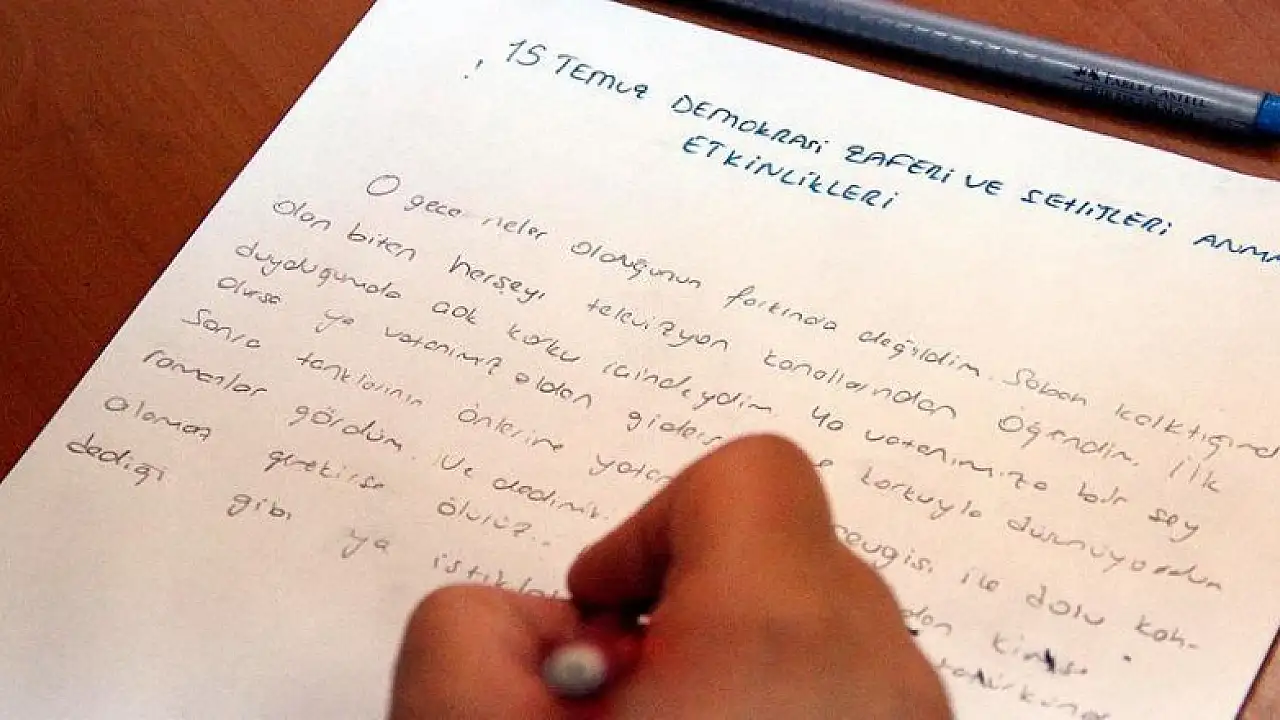 15 TEMUZ DEMOKRASİ ZAFERİ VE ŞEHİTLERİ ANMA
ETKİNLİKLERİ
O gece neler olduğunun farkında değildim. Sabah kalktığımd
olan biten herşeyi televizyon kanallarından öğendim. İlk
duyduğumda çok korku içindeydim ya vatanımıza bir şey
olursa ya vatanımız elden giderse korkuyla dürünüyordum
Sonra tankların önlerine yatan sevgisi ile dolu kah-
ramanlar gördüm. Ve dedimki kimse
alamaz gerekirse ölürüz...
dediği gibi ya istiklal
FABER-CASTELL